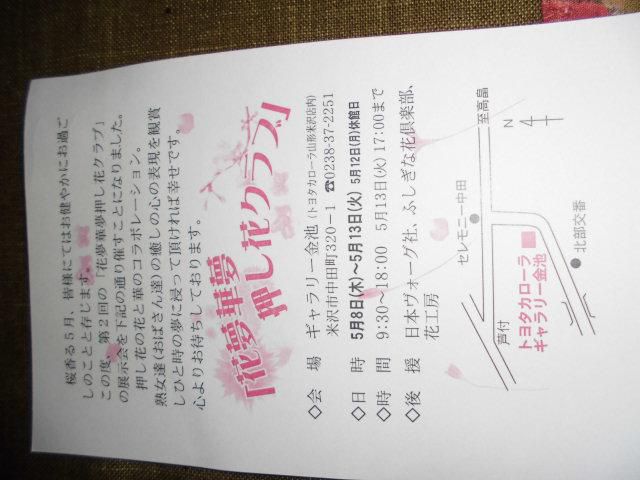 桜香る5月、皆様にてはお健やかにお過ご
しのことと存じます。
この度、第2回の「花夢華夢押し花クラブ」
の展示会を下記の通り催すことになりました。
押し花の花と華のコラボレーション。
熟女達(おばさん達)の癒しの心の表現を観賞
しひと時の夢に浸って頂ければ幸せです。
心よりお待ちしております。
「花夢華夢
押し花クラブ」
◇会 場 ギャラリー金池(トヨタカローラ山形米沢店内)
米沢市中田町320-1 ☎0238-37-2251
◇日 時 5月8日(木)~5月13日(火) 5月12日(月)休館日
◇時 間 9:30~18:00 5月13日(火)17:00まで
◇後 援 日本ヴォーグ社、ふしぎな花倶楽部、
花工房
至高畠
N
4
セレモニー中田
北部交番
芦付
トヨタカローラ
ギャラリー金池